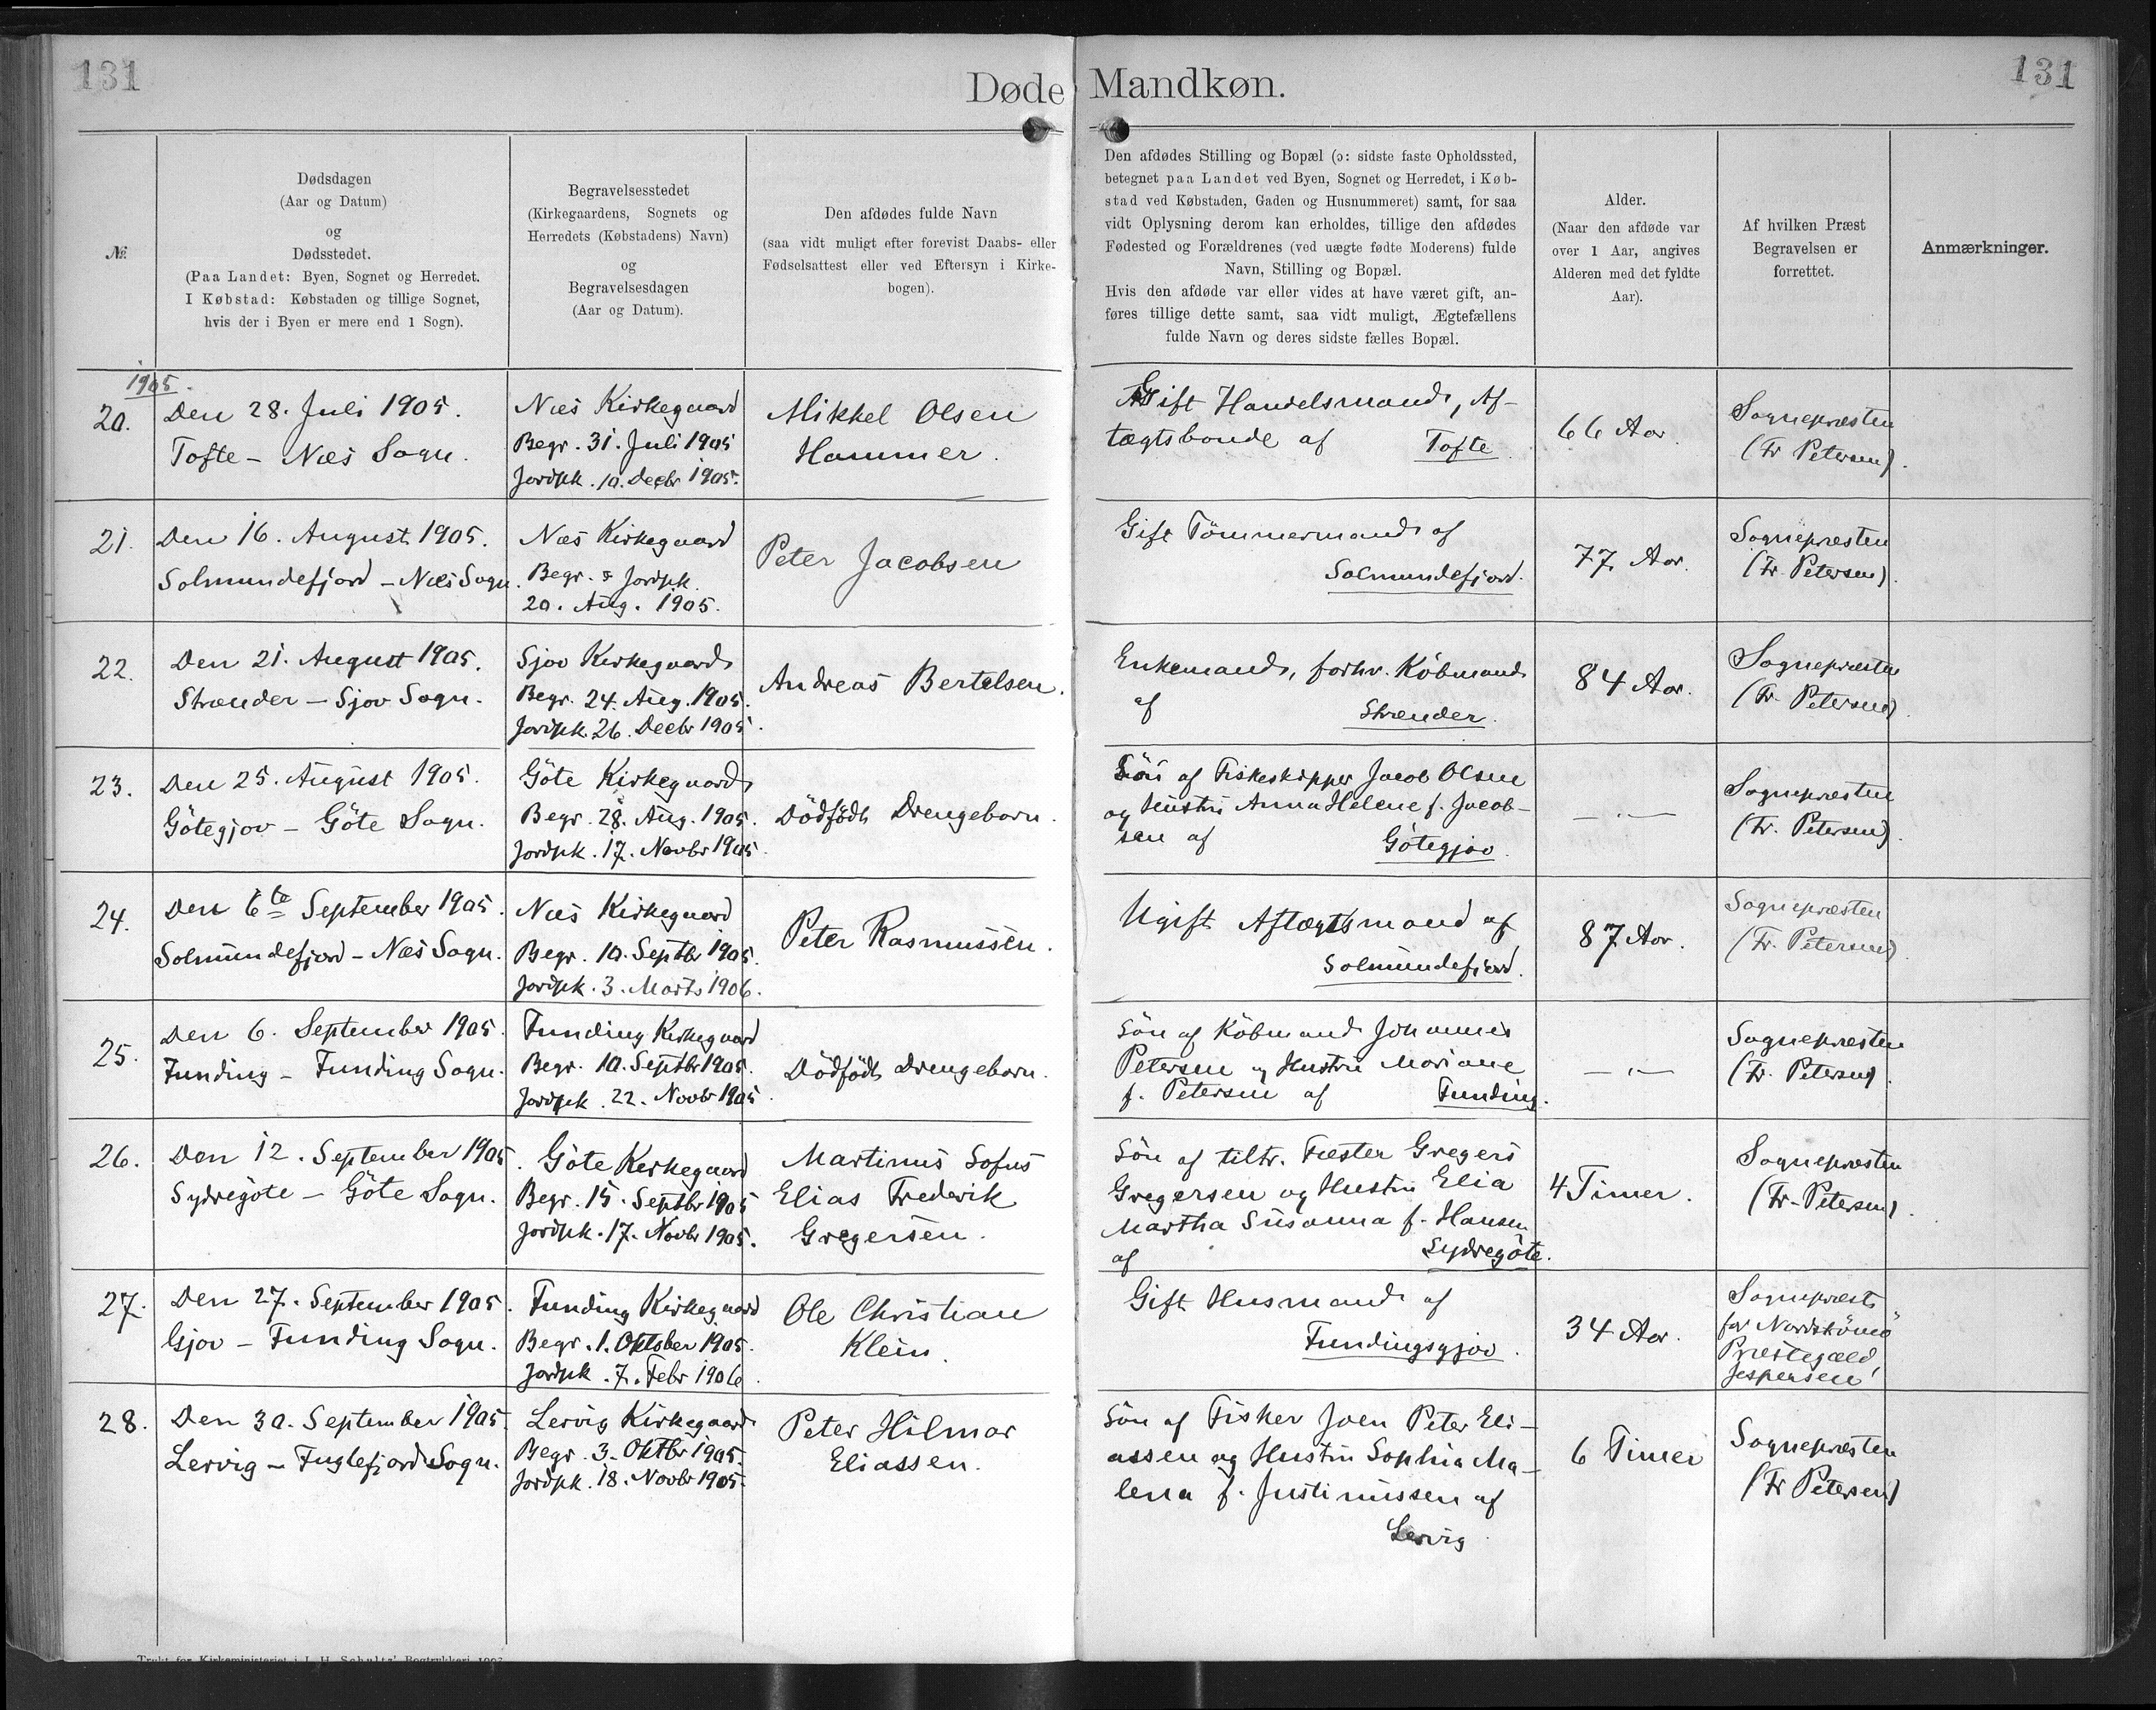 131
Døde Mandkøn.
131
№
Dødsdagen
(Aar og Datum)
og
Dødsstedet.
(Paa Landet: Byen, Sognet og Herredet.
I Købstad: Købstaden og tillige Sognet,
hvis der i Byen er mere end 1 Sogn).
Begravelsesstedet
(Kirkegaardens, Sognets og
Herredets (Købstadens) Navn)
og
Begravelsesdagen
(Aar og Datum).
Den afdødes fulde Navn
(saa vidt muligt efter forevist Daabs- eller
Fødselsattest eller ved Eftersyn i Kirke-
bogen).
Den afdødes Stilling og Bopæl (ɔ: sidste faste Opholdssted,
betegnet paa Landet ved Byen, Sognet og Herredet, i Køb-
stad ved Købstaden, Gaden og Husnummeret) samt, for saa
vidt Oplysning derom kan erholdes, tillige den afdødes
Fødested og Forældrenes (ved uægte fødte Moderens) fulde
Navn, Stilling og Bopæl.
Hvis den afdøde var eller vides at have været gift, an-
føres tillige dette samt, saa vidt muligt, Ægtefællens
fulde Navn og deres sidste fælles Bopæl.
Alder.
(Naar den afdøde var
over 1 Aar, angives
Alderen med det fyldte
Aar).
Af hvilken Præst
Begravelsen er
forrettet.
Anmærkninger.
1905.
20.
Den 28. Juli 1905.
Tofte – Næs Sogn.
Næs Kirkegaard
Begr. 31. Juli 1905
Jordpk. 10. Decbr 1905.
Mikkel Olsen
Hammer.
Gift Handelsmand, Af-
tægtsbonde af Tofte.
66 Aar.
Sognepræsten
(Fr Petersen).
21.
Den 16. August 1905.
Solmundefjord – Næs Sogn.
Næs Kirkegaard
Begr. & Jordpk.
20. Aug. 1905.
Peter Jacobsen
Gift Tömmermand af
Solmundefjord.
77 Aar.
Sognepræsten
(Fr. Petersen).
22.
Den 21. August 1905.
Strænder – Sjov Sogn.
Sjov Kirkegaard
Begr. 24. Aug. 1905.
Jordpk. 26. Decbr 1905.
Andreas Bertelsen.
Enkemand, forhv. Köbmand
af Strænder.
84 Aar.
Sognepræsten
(Fr. Petersen).
23.
Den 25. August 1905.
Götegjov – Göte Sogn.
Göte Kirkegaard
Begr. 28. Aug. 1905.
Jordpk. 17. Novbr 1905.
Dödfödt Drengebarn.
Sön af Fiskeskipper Jacob Olsen
og Hustru Anna Helene f. Jacob-
sen af Götegjov.
— . —
Sognepræsten
(Fr. Petersen).
24.
Den 6te September 1905.
Solmundefjord – Næs Sogn.
Næs Kirkegaard
Begr. 10. Septbr 1905.
Jordpk. 3. Marts 1906.
Peter Rasmussen.
Ugift Aftægtsmand af
Solmundefjord.
87 Aar.
Sognepræsten
(Fr. Petersen).
25.
Den 6. September 1905.
Funding – Funding Sogn.
Funding Kirkegaard
Begr. 10. Septbr 1905.
Jordpk. 22. Novbr 1905.
Dödfödt Drengebarn.
Sön af Köbmand Johannes
Petersen og Hustru Mariane
f. Petersen af Funding.
— . —
Sognepræsten
(Fr. Petersen).
26.
Den 12. September 1905.
Sydregöte – Göte Sogn.
Göte Kirkegaard
Begr. 15. Septbr 1905
Jordpk. 17. Novbr 1905.
Martinus Sofus
Elias Frederik
Gregersen.
Sön af tiltr. Fæster Gregers
Gregersen og Hustru Elia
Martha Susanna f. Hansen
af Sydregöte.
4 Timer.
Sognepræsten
(Fr. Petersen).
27.
Den 27. September 1905.
Gjov – Funding Sogn.
Funding Kirkegaard
Begr. 1. Oktober 1905.
Jordpk. 7. Febr 1906.
Ole Christian
Klein.
Gift Husmand af
Fundingsgjov.
34 Aar.
Sognepræst
for Nordströmö
Præstegæld,
Jespersen
28.
Den 30. September 1905.
Lervig – Fuglefjord Sogn.
Lervig Kirkegaard
Begr. 3. Oktbr 1905.
Jordpk. 18. Novbr 1905.
Peter Hilmar
Eliassen.
Sön af Fisker Joen Peter Eli-
assen og Hustru Sophia Ma-
lena f. Justinussen af
Lervig.
6 Timer
Sognepræsten
(Fr Petersen)